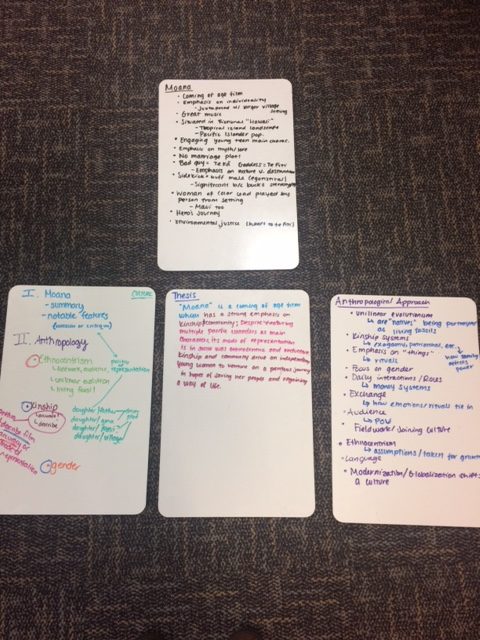 Moana
• Coming of age film
• Emphasis on individuality
- Juxtaposed w/ larger village
setting
• Great music
• Situated in fictional "Hawaii"
- Tropical island landscape
- Pacific Islander pop.
• Engaging young teen main charac.
• Emphasis on myth/lore
• No marriage plot!
• Bad guy = Te Kā Goddess = Te Fiti
- Emphasis on nature v.
• Sidekick = buff male (egotistical)
- Significant b/c bucks
• Woman of color lead played by
person from setting
- Maui too
• Hero's Journey
• Environmental justice
I. Moana
- summary
- notable features
II. Anthropology
Ethnocentrism
unilinear evolution
living fossil!
Kinship
describe
daughter/father
daughter/gma
daughter/
daughter/village
gender
culture
representation
Thesis
"Moana" is a coming of age film
which has a strong emphasis on
kinship/community; Despite featuring
multiple pacific islanders as main
characters, its mode of representation
is in some ways ethnocentric and
kinship and community drive an independent
young woman to venture on a perilous journey
in hopes of saving her people and regaining
a way of life.
Anthropological Approach
• Unilinear evolutionism
↳ are "natives" being portrayed
as living fossils
• Kinship systems
↳ exogamy, patriarchs, etc
• Emphasis on "things"
↳ rituals
• Focus on gender
• Daily interactions/Roles
↳ money systems
• Exchange
↳ how emotions/rituals tie in
• Audience
↳ POV
• Fieldwork/Joining culture
• Ethnocentrism
↳ assumptions/taken for
• Language
• Modernization/Globalization shifts
a culture